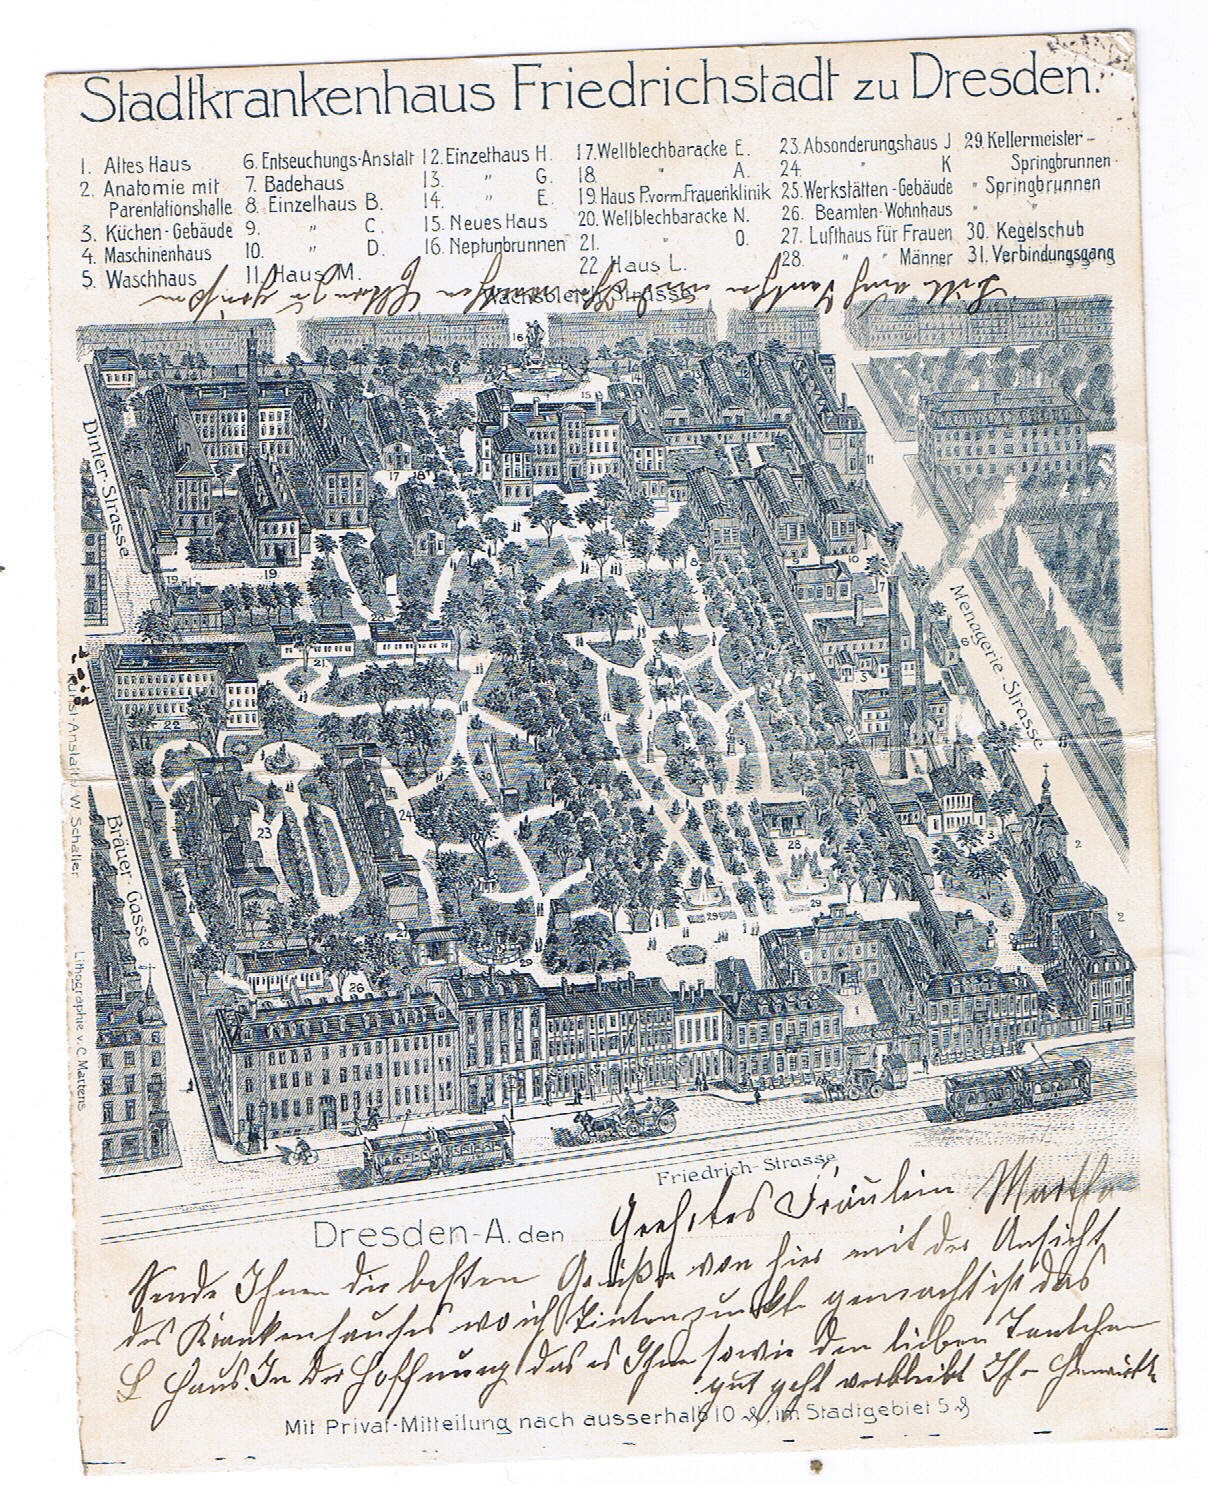 Stadtkrankenhaus Friedrichstadt zu Dresden.
1. Altes Haus
2. Anatomie mit
Parentationshalle
3. Küchen-Gebäude
4. Maschinenhaus
5. Waschhaus
6. Entseuchungs-Anstalt
7. Badehaus
8. Einzelhaus B.
9. " C.
10. " D.
11. Haus M.
12. Einzelhaus H.
13. " G.
14. " E.
15. Neues Haus
16. Neptunbrunnen
17. Wellblechbaracke E.
18. " A.
19. Haus P. vorm. Frauenklinik
20. Wellblechbaracke N.
21. " O.
22. Haus L.
23. Absonderungshaus J
24. " K
25. Werkstätten-Gebäude
26. Beamten-Wohnhaus
27. Lufthaus für Frauen
28. " " Männer
29. Kellermeister-
Springbrunnen
" Springbrunnen
" "
30. Kegelschub
31. Verbindungsgang
Bitte auch Tantchen und Ihre werthen Eltern zu grüßen
Wachsbleich-Strasse
Dinter-Strasse
Menagerie-Strasse
Bräuer-Gasse
Kunst-Anstalt v. W. Schaller
Lithographie v. C. Martens
16
15
14
11
17
18
19
19
8
9
10
7
6
21
22
3
30
23
24
28
29
29
2
2
3
21
23
26
29
1
Friedrich-Strasse
Dresden-A. den
Geehrtes Fräulein Martha
Sende Ihnen die besten Grüße von hier mit der Ansicht
des Krankenhauses wo ich Tintenpunkte gemacht ist das
L Haus. In der Hoffnung das es Ihnen sowie den lieben Tantchen
gut geht verbleibt Ihr
Mit Privat-Mitteilung nach ausserhalb 10 ₰, im Stadtgebiet 5 ₰